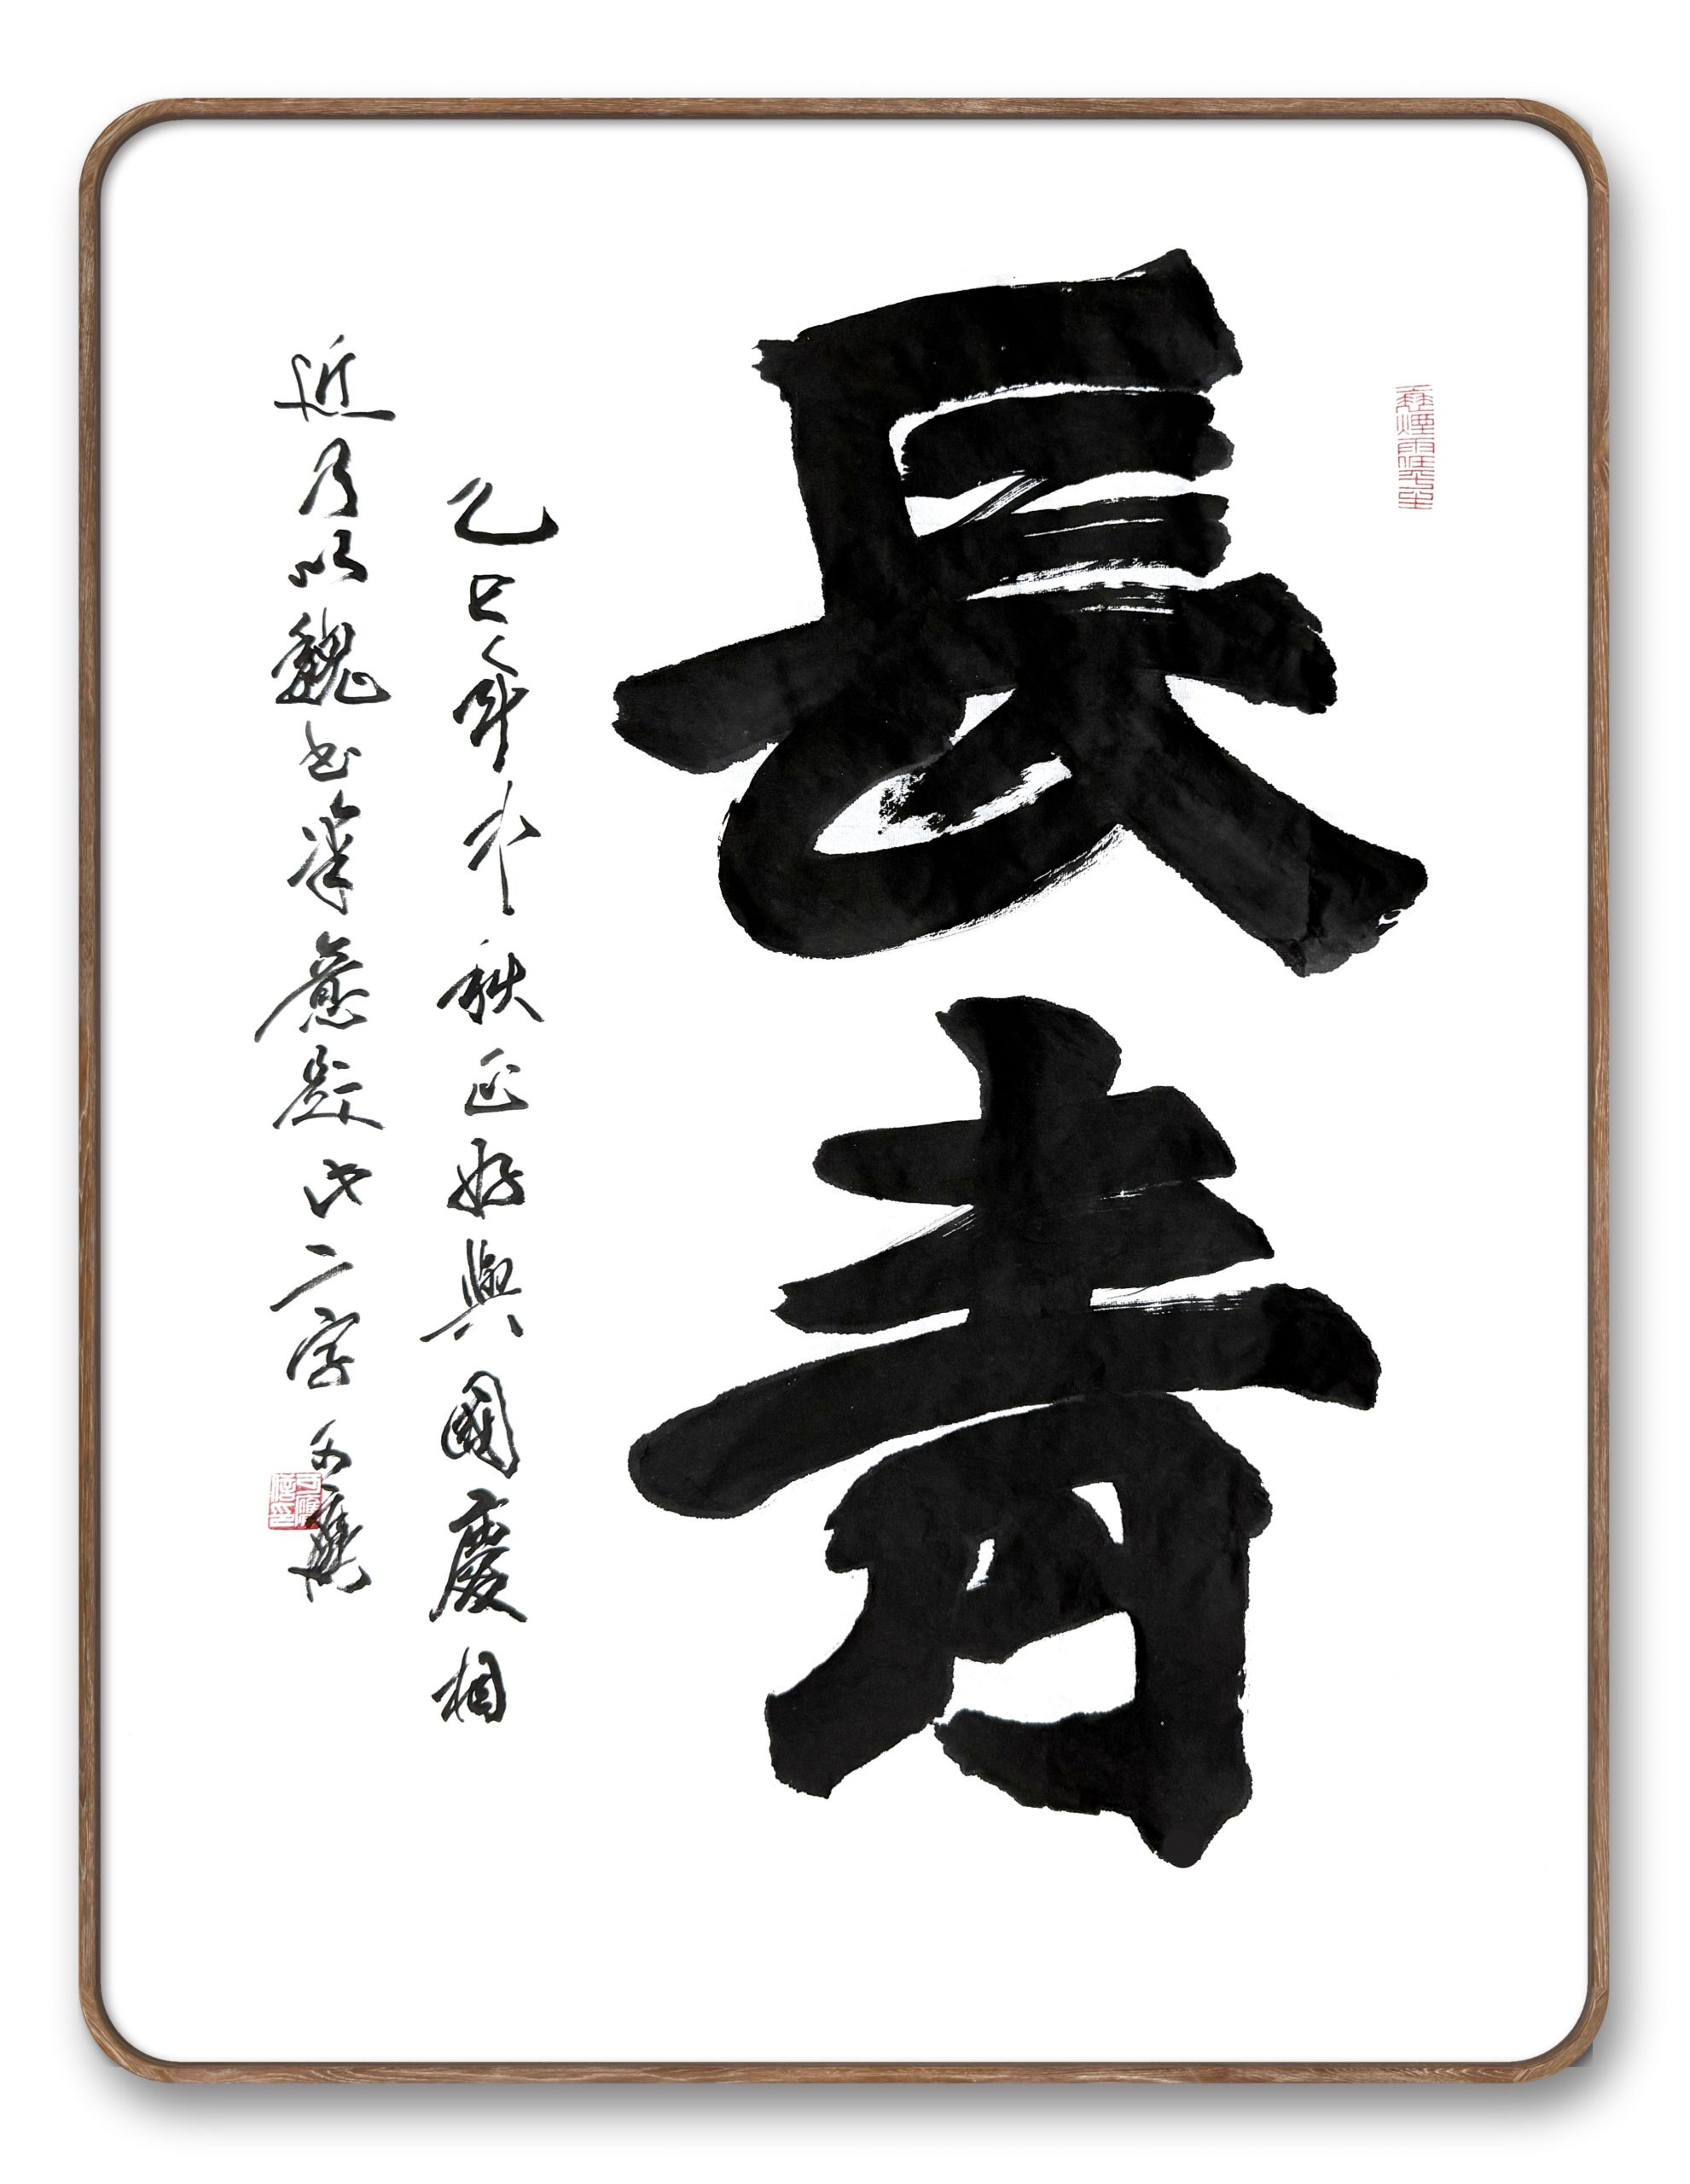 長青
乙巳年中秋正好與國慶相
近乃以魏書筆意題此二字